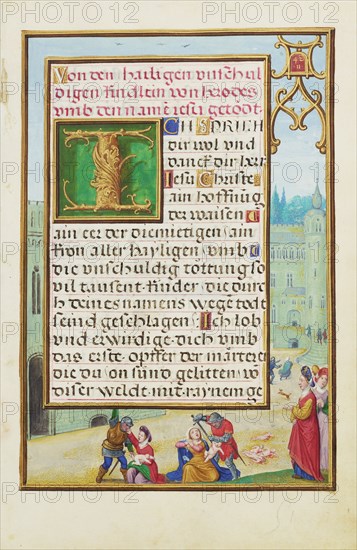 Von den hailigen unschul
digen kindlein von herodes
umb den namē iesu getödt
ICH SPRICH
dir lob und
danck dir her
Jesu Christe
ain hoffnūg
der waisen
ain eer der diemietigen ain
kron aller hayligen umb
die unschuldig tottung so
vil tausent kinder die durch
deines namens wegē todt
seind geschlagen Ich lob
und erwirdige dich umb
das erste opffer der märterer
die du on sünd gelitten
diser welt mit raynem ge